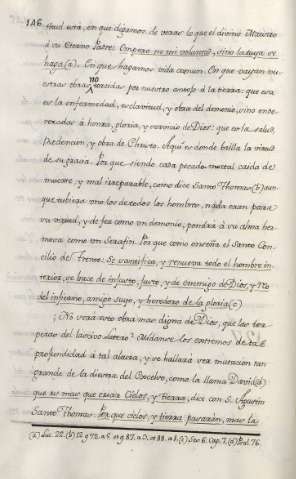 146.
titud viva, en que digamos de veras lo que el divino Maestro
à su Eterno Padre: Empero no mi voluntad, sino la tuya se
haga (a). En que hagamos vida comun. En que
nuestras obras no por nuestro à la tierra: que esta
es la enfermedad, esclavitud, y obra del demonio, sino ende-
rezadas à honra, gloria, y servicio de Dios: que es la salud,
Redencion, y obra de Christo. Aqui es donde halla la virtud
de su gracia. Por que siendo cada pecado mortal caida de
muerte, y mal irreparable, como dice Santo Thomas (b) aun
que subiera uno los de todos los hombres, nada eran para
su virtud, y de fea como un demonio, pondrà à su alma her-
mosa como un Serafin. Por que como enseña el Santo Con-
cilio de Trento: Se santifica, y renueva todo el hombre in-
terior, se hace de Injusto, Justo, y de enemigo de Dios, y Reo
del infierno, amigo suyo, y heredero de la gloria (c)
¿No verà otro obra mas digna de Dios, que las
Midanse los extremos de tal
profundidad à tal altura, y se hallarà ser mutacion tan
grande de la diestra del Excelso, como la llama David (d)
que es mas que criar Cielos, y tierra, dice con S. Agustin
Santo Thomas: Por que cielos, y tierra pasaràn, mas la
(a) Luc. 22. (b) 12. q 72. a. 5. et q 87. a. 3. et 88. a. 1. (c) Ses. 6. Cap. 7. (d) Psal. 76.